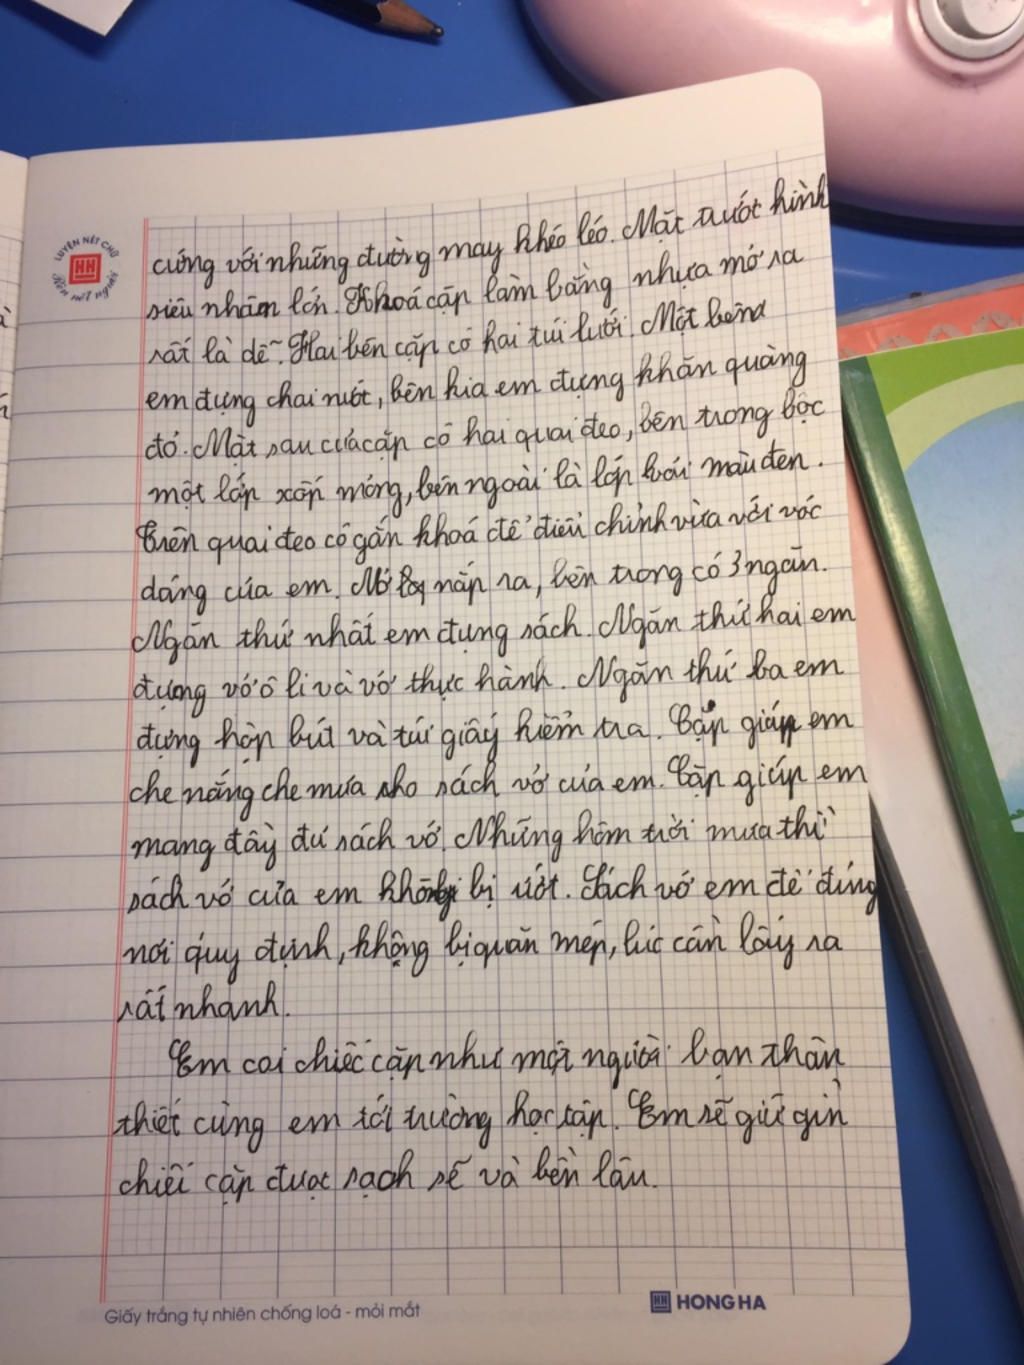 LUYỆN NÉT CHỮ
Rèn nết người
cứng với những đường may khéo léo. Mặt trước hình
siêu nhân lớn. Khoá cặp làm bằng nhựa mở ra
rất là dễ. Hai bên cặp có hai túi lưới. Một bên
em đựng chai nước, bên kia em đựng khăn quàng
đỏ. Mặt sau của cặp có hai quai đeo, bên trong bọc
một lớp xốp mỏng, bên ngoài là lớp vải màu đen.
Trên quai đeo có gắn khoá để điều chỉnh vừa với vóc
dáng của em. Mở nắp ra, bên trong có 3 ngăn.
Ngăn thứ nhất em đựng sách. Ngăn thứ hai em
đựng vở ô li và vở thực hành. Ngăn thứ ba em
đựng hộp bút và túi giấy kiểm tra. Cặp giúp em
che nắng che mưa cho sách vở của em. Cặp giúp em
mang đầy đủ sách vở. Những hôm trời mưa thì
sách vở của em không bị ướt. Sách vở em để đúng
nơi quy định, không bị quăn mép, lúc cần lấy ra
rất nhanh.
Em coi chiếc cặp như một người bạn thân
thiết cùng em tới trường học tập. Em sẽ giữ gìn
chiếc cặp được sạch sẽ và bền lâu.
Giấy trắng tự nhiên chống loá - mỏi mắt
HH HONG HA